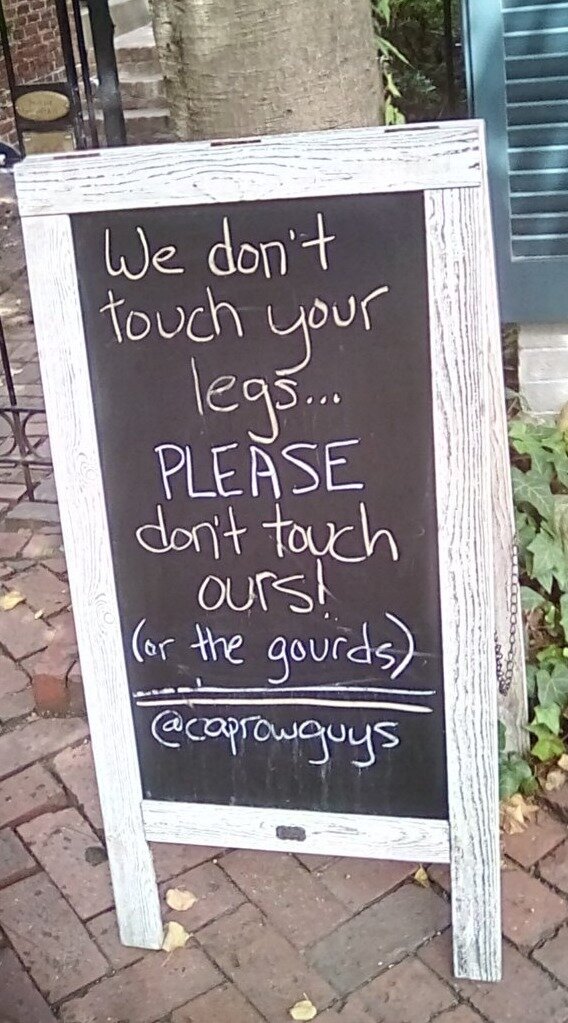 We don't
touch your
legs...
PLEASE
don't touch
ours!
(or the gourds)
@caprowguys